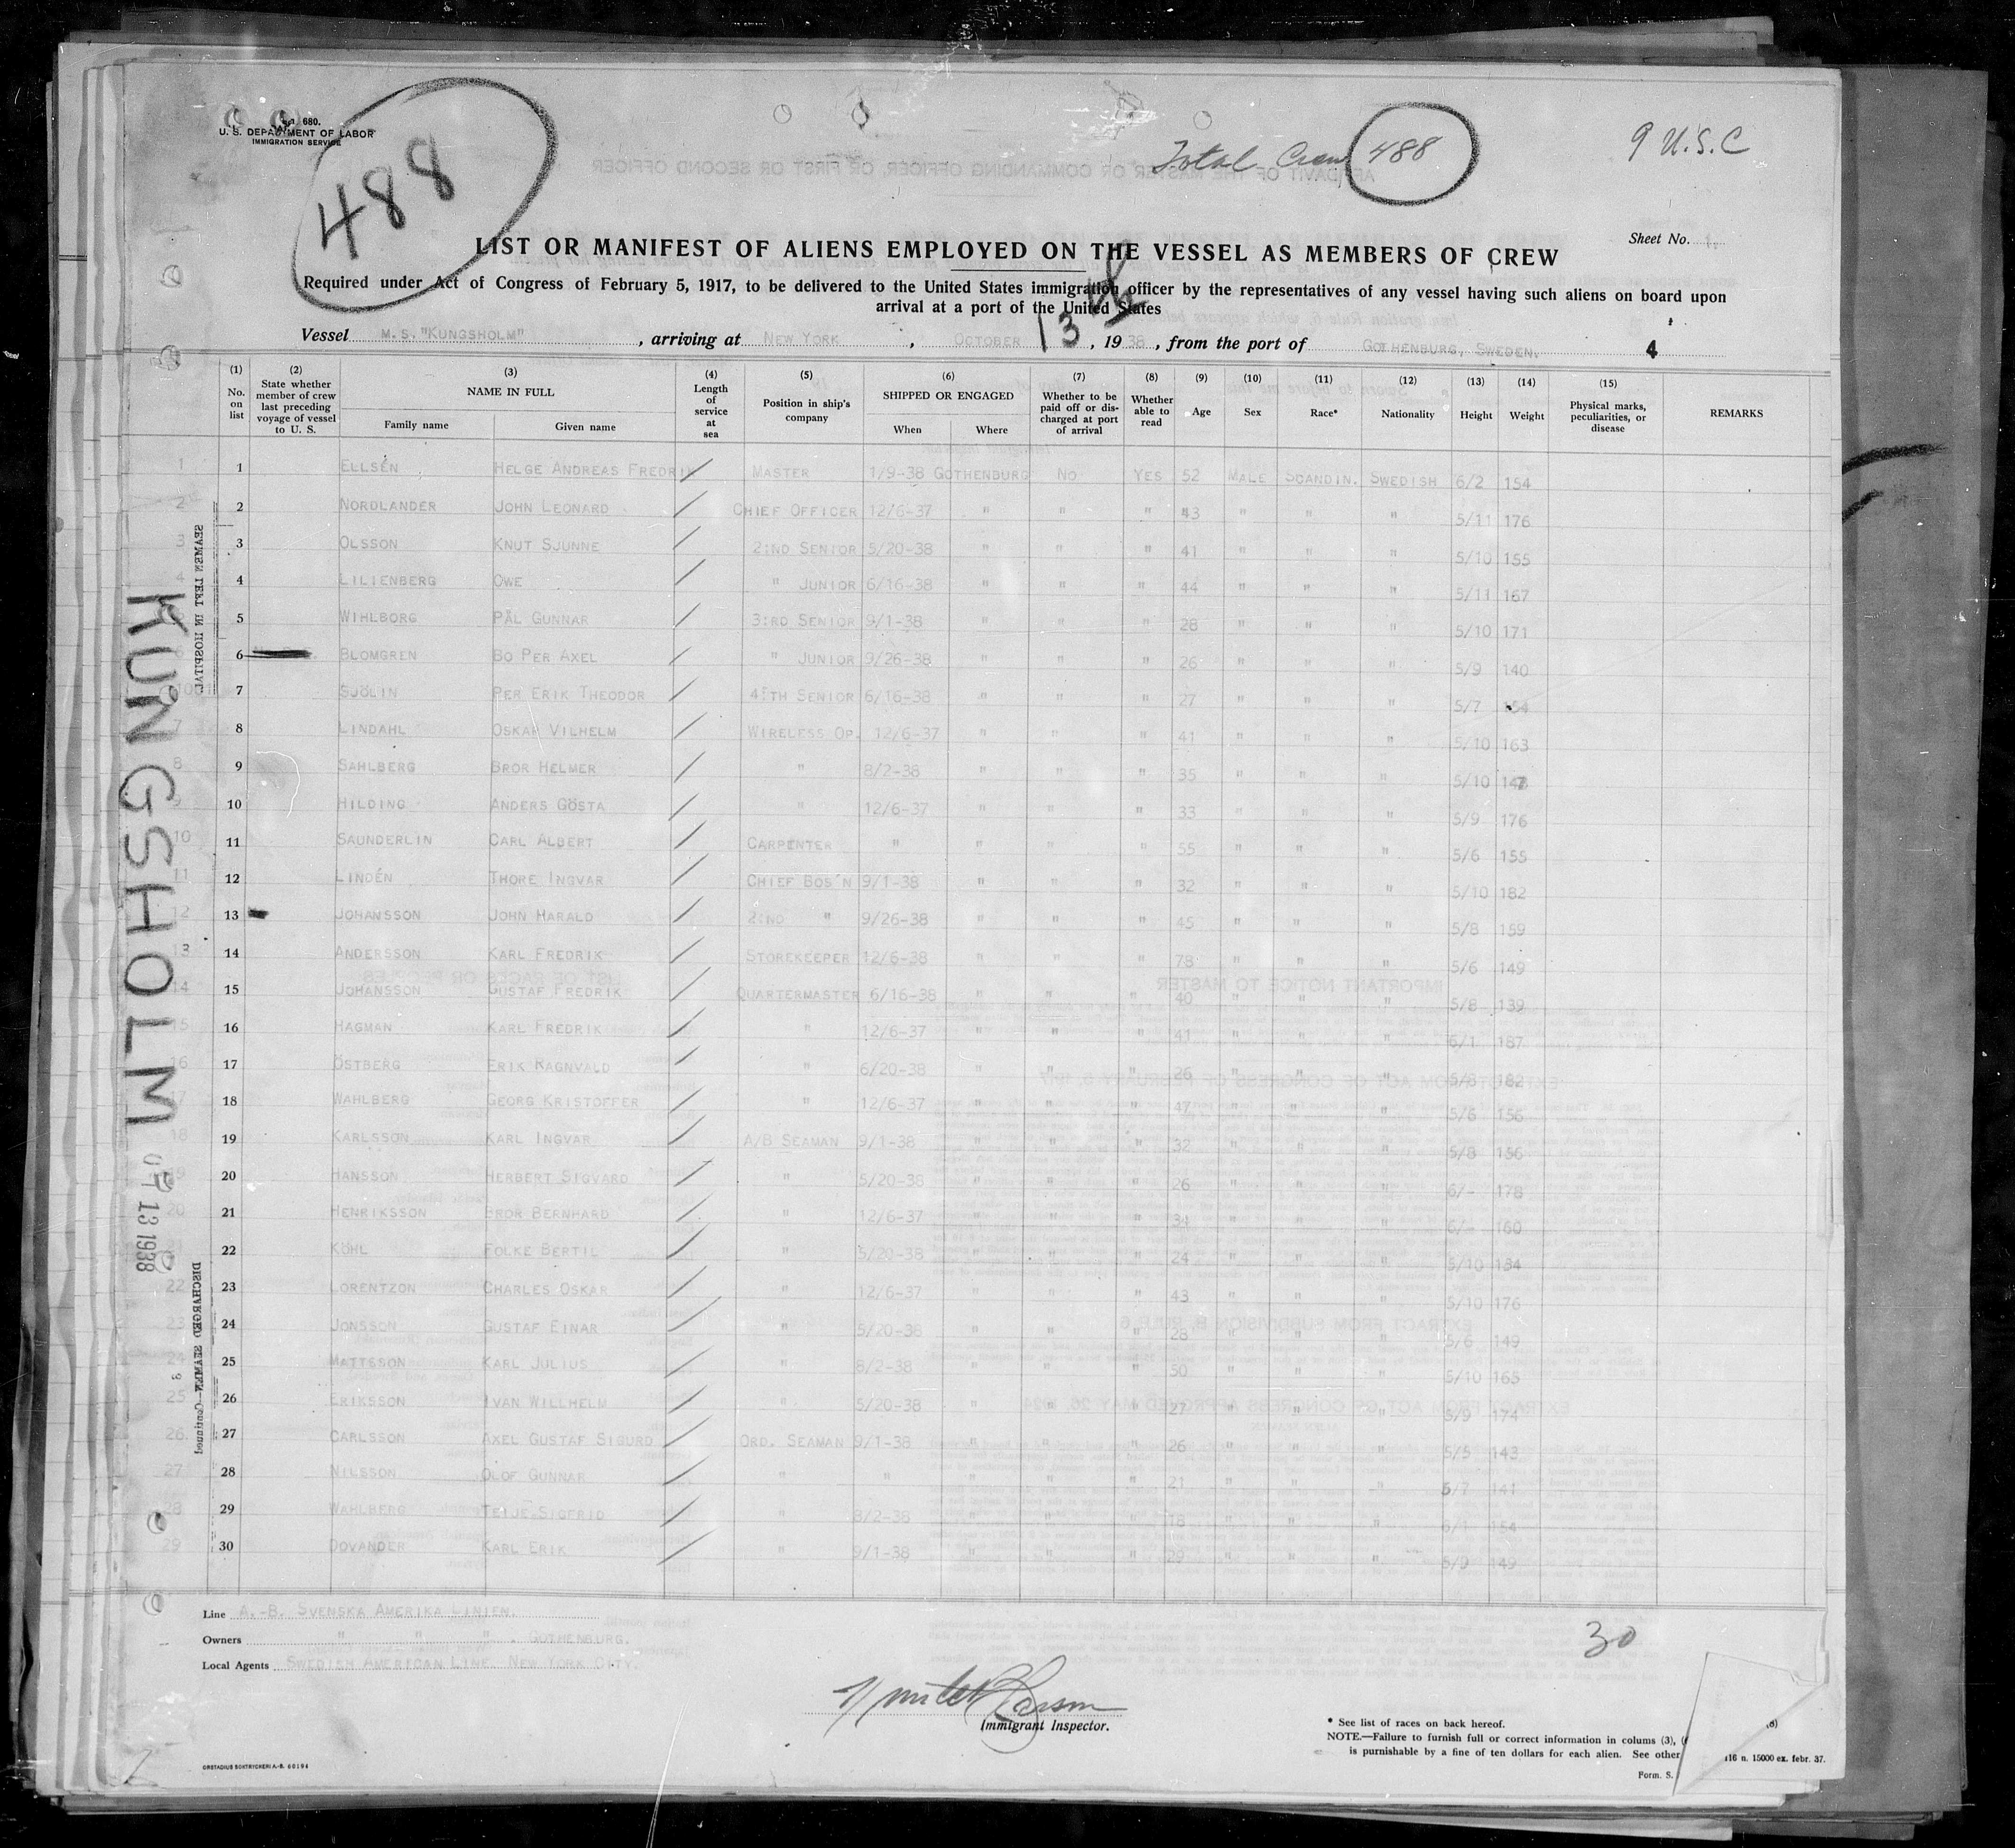 680.
U. S. DEPARTMENT OF LABOR
IMMIGRATION SERVICE
488
Total Crew 488
9 U.S.C
Sheet No. 1.
LIST OR MANIFEST OF ALIENS EMPLOYED ON THE VESSEL AS MEMBERS OF CREW
Required under Act of Congress of February 5, 1917, to be delivered to the United States immigration officer by the representatives of any vessel having such aliens on board upon
arrival at a port of the United States
Vessel M.S."KUNGSHOLM", arriving at NEW YORK, OCTOBER 13th, 1938, from the port of GOTHENBURG, SWEDEN. 4
(1) No. on list (2) State whether member of crew last preceding voyage of vessel to U. S. (3) NAME IN FULL Family name Given name (4) Length of service at sea (5) Position in ship's company (6) SHIPPED OR ENGAGED When Where (7) Whether to be paid off or discharged at port of arrival (8) Whether able to read (9) Age (10) Sex (11) Race* (12) Nationality (13) Height (14) Weight (15) Physical marks, peculiarities, or disease REMARKS
1 ELLSÉN HELGE ANDREAS FREDRIK MASTER 1/9-38 GOTHENBURG NO YES 52 MALE SCANDIN. SWEDISH 6/2 154
2 NORDLANDER JOHN LEONARD CHIEF OFFICER 12/6-37 " " " 43 " " " 5/11 176
3 OLSSON KNUT SJUNNE 2:ND SENIOR 5/20-38 " " " 41 " " " 5/10 155
4 LILIENBERG OWE " JUNIOR 6/16-38 " " " 44 " " " 5/11 167
5 WIHLBORG PÅL GUNNAR 3:RD SENIOR 9/1-38 " " " 28 " " " 5/10 171
6 BLOMGREN BO PER AXEL " JUNIOR 9/26-38 " " " 26 " " " 5/9 140
7 SJÖLIN PER ERIK THEODOR 4:TH SENIOR 6/16-38 " " " 27 " " " 5/7 154
8 LINDAHL OSKAR VILHELM WIRELESS OP. 12/6-37 " " " 41 " " " 5/10 163
9 SAHLBERG BROR HELMER " 8/2-38 " " " 35 " " " 5/10
10 HILDING ANDERS GÖSTA " 12/6-37 " " " 33 " " " 5/9 176
11 SAUNDERLIN CARL ALBERT CARPENTER " " " " 55 " " " 5/6 155
12 LINDÉN THORE INGVAR CHIEF BOS'N 9/1-38 " " " 32 " " " 5/10 182
13 JOHANSSON JOHN HARALD 2:ND " 9/26-38 " " " 45 " " " 5/8 159
14 ANDERSSON KARL FREDRIK STOREKEEPER 12/6-38 " " " 78 " " " 5/6 149
15 JOHANSSON GUSTAF FREDRIK QUARTERMASTER 6/16-38 " " " 40 " " " 5/8 139
16 HAGMAN KARL FREDRIK " 12/6-37 " " " 41 " " " 6/1 187
17 ÖSTBERG ERIK RAGNVALD " 6/20-38 " " " 26 " " " 5/8 182
18 WAHLBERG GEORG KRISTOFFER " 12/6-37 " " " 47 " " " 5/6 156
19 KARLSSON KARL INGVAR A/B SEAMAN 9/1-38 " " " 32 " " " 5/8 156
20 HANSSON HERBERT SIGVARD " 5/20-38 " " " 26 " " " 6/- 178
21 HENRIKSSON BROR BERNHARD " 12/6-37 " " " 31 " " " 6/- 160
22 KÖHL FOLKE BERTIL " 5/20-38 " " " 24 " " " 5/10 134
23 LORENTZON CHARLES OSKAR " 12/6-37 " " " 43 " " " 5/10 176
24 JONSSON GUSTAF EINAR " 5/20-38 " " " 28 " " " 5/6 149
25 MATTSSON KARL JULIUS " 8/2-38 " " " 50 " " " 5/10 165
26 ERIKSSON IVAN WILLHELM " 5/20-38 " " " 27 " " " 5/9 174
27 CARLSSON AXEL GUSTAF SIGURD ORD. SEAMAN 9/1-38 " " " 26 " " " 5/5 143
28 NILSSON OLOF GUNNAR " " " " " 21 " " " 5/7 141
29 WAHLBERG TEIJE SIGFRID " 8/2-38 " " " 18 " " " 6/1 154
30 DOVANDER KARL ERIK " 9/1-38 " " " 29 " " " 5/9 149
KUNGSHOLM
13 1938
SEAMEN LEFT IN HOSPITAL
DISCHARGED SEAMEN—Continued
Line A.-B. SVENSKA AMERIKA LINIEN.
Owners " " " . GOTHENBURG.
Local Agents SWEDISH AMERICAN LINE. NEW YORK CITY.
30
Immigrant Inspector.
* See list of races on back hereof.
NOTE.—Failure to furnish full or correct information in colums (3), (
is purnishable by a fine of ten dollars for each alien. See other
116 n. 15000 ex. febr. 37.
Form. S.
ORSTADIUS BOKTRYCKERI A.-B. 60194